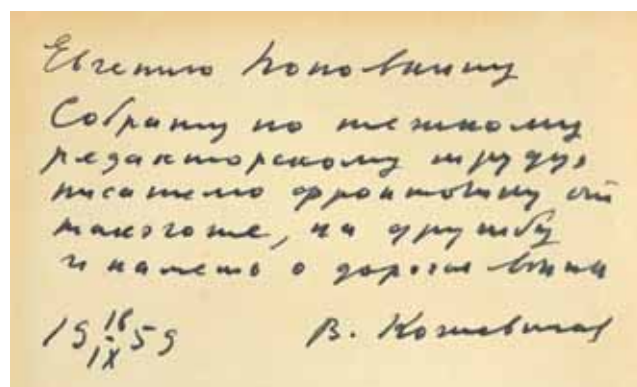 Евгению Поповкину
Собрату по тяжкому
редакторскому труду,
писателю фронтовику от
такогоже, на дружбу
и память о дорогах войны
19 18/IX 59 В. Кожевников